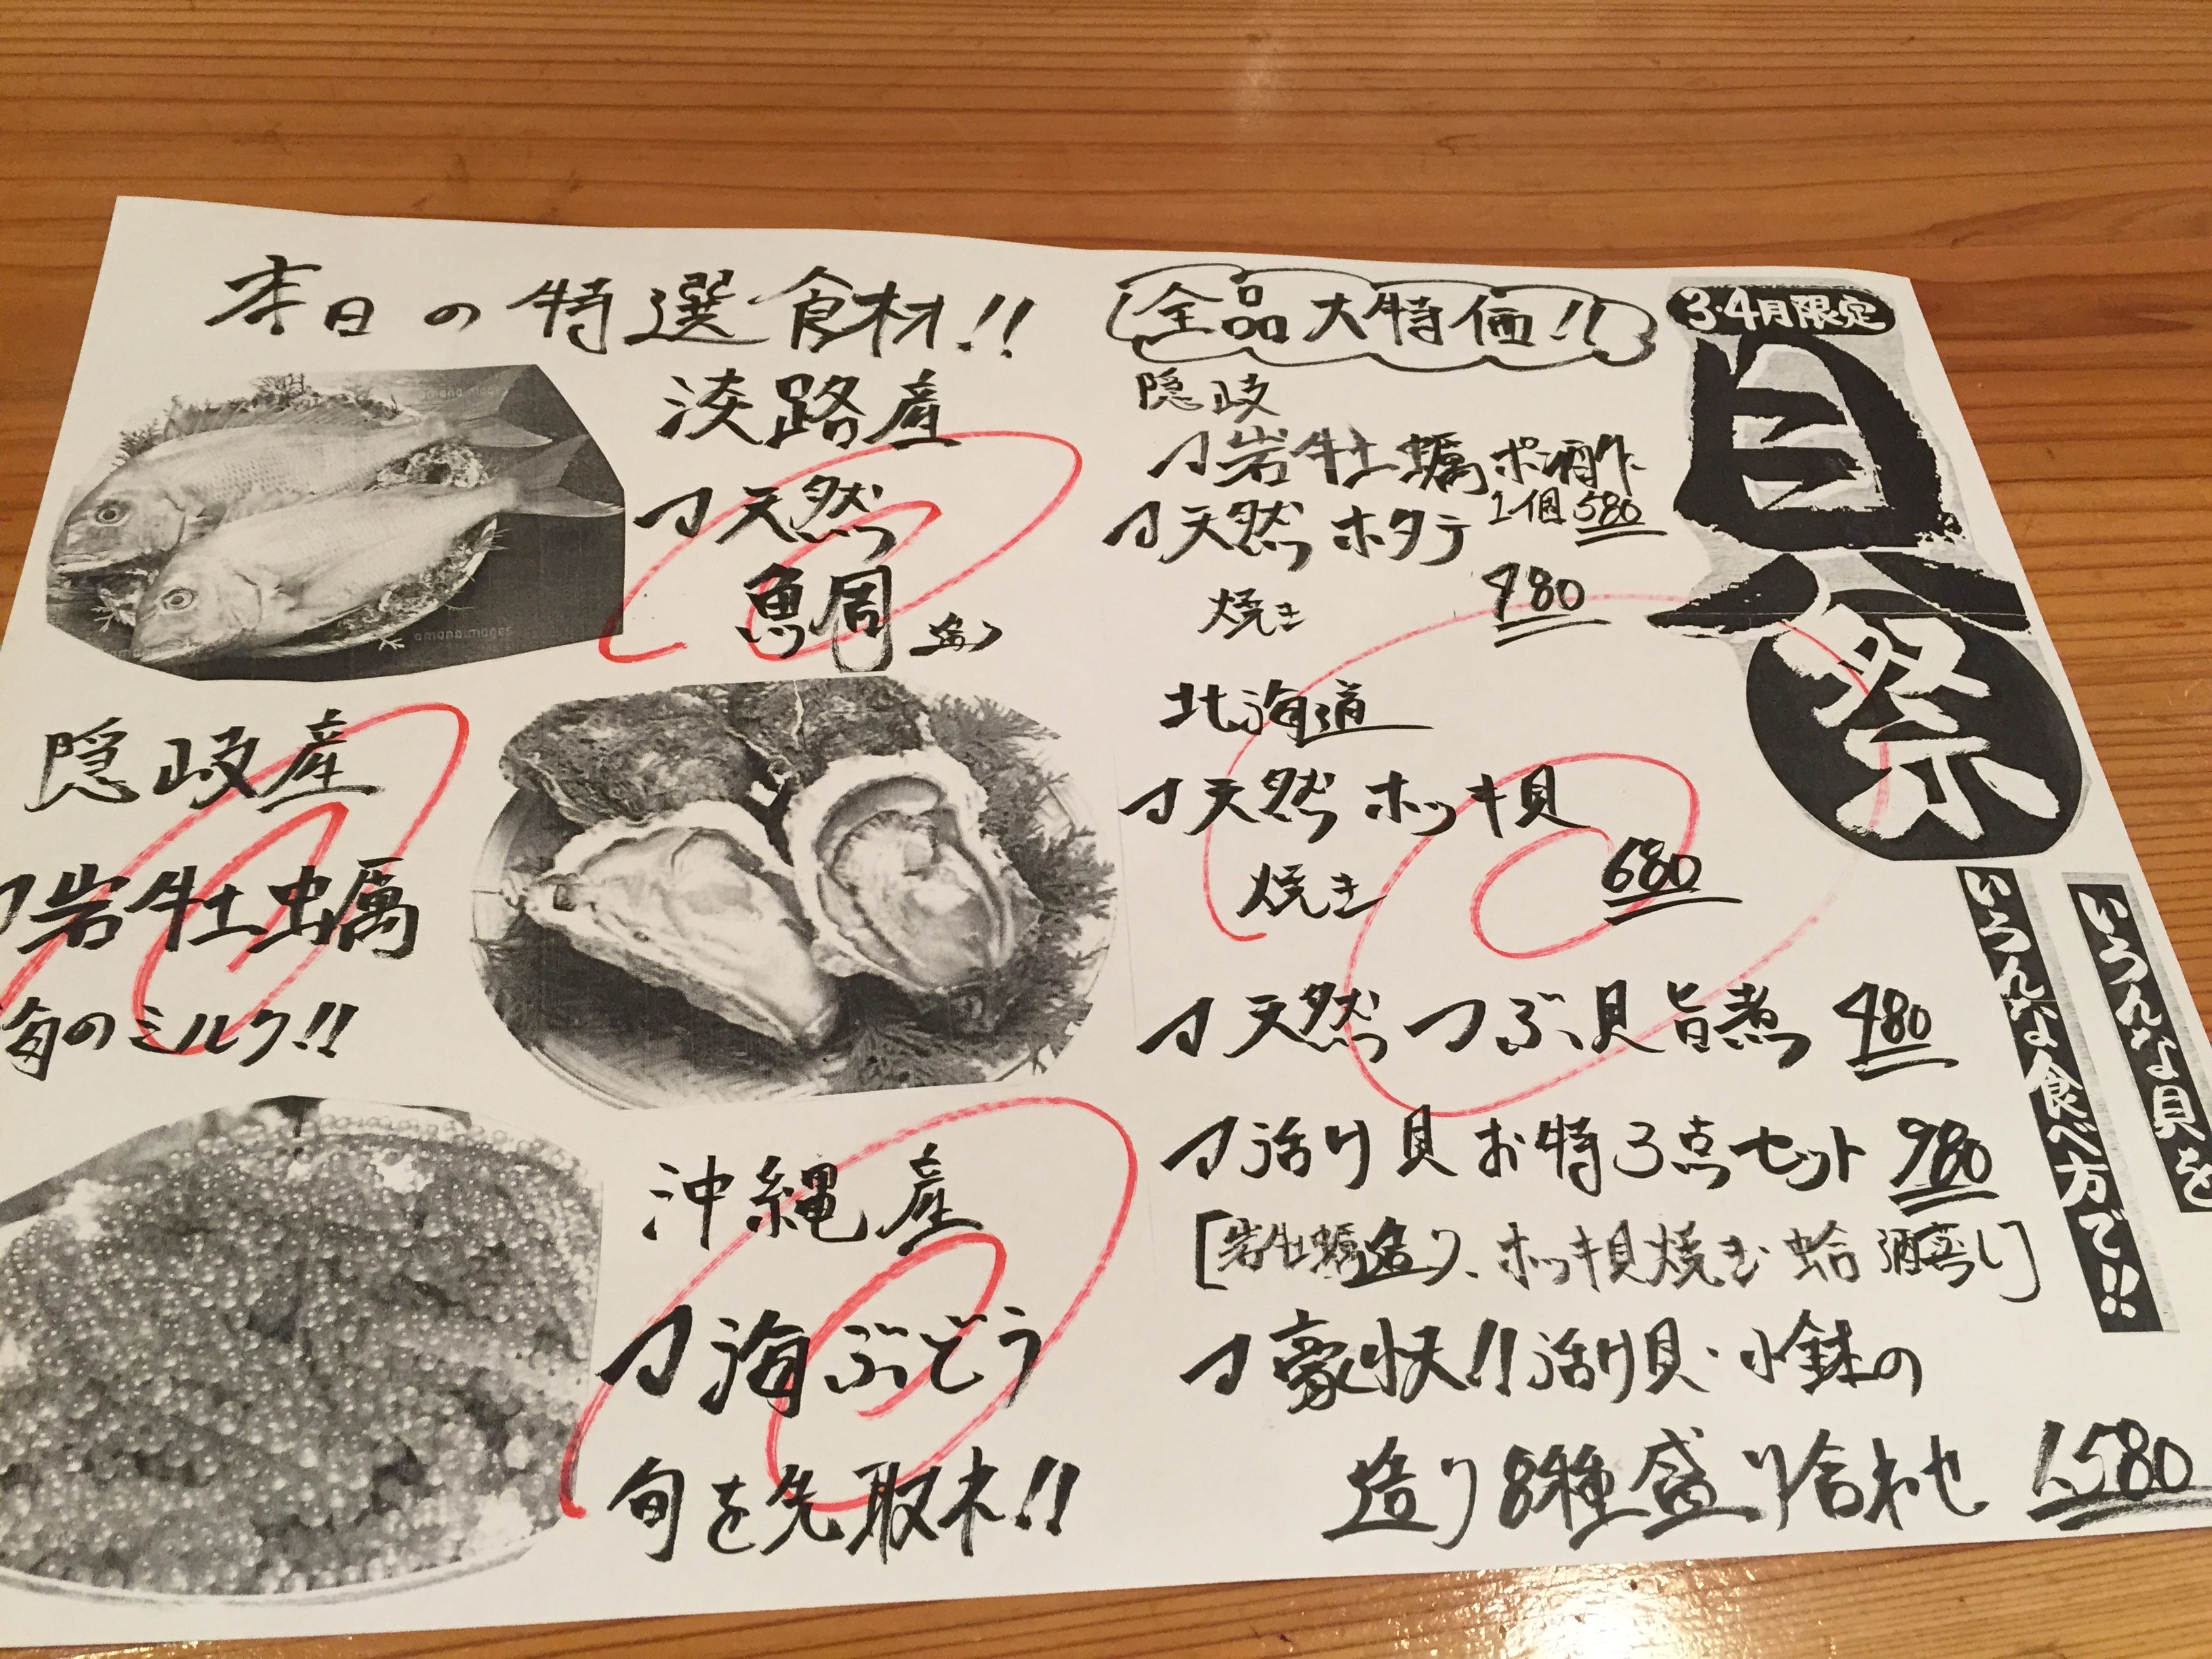 本日の特選食材!!
淡路産
天然
鯛 造り
隠岐産
岩牡蠣
海のミルク!!
沖縄産
海ぶどう
旬を先取れ!!
全品大特価!!
隠岐
岩牡蠣ポン酢
1個580
天然ホタテ
焼き 480
北海道
天然ホッキ貝
焼き 680
天然つぶ貝旨煮 480
活け貝お特3点セット 980
[岩牡蠣造り、ホッキ貝焼き 蛤 酒蒸し]
豪快!!活け貝・小鉢の
造り8種盛り合わせ 1,580
3・4月限定
貝祭
いろんな貝を
いろんな食べ方で!!
amana images
amana images